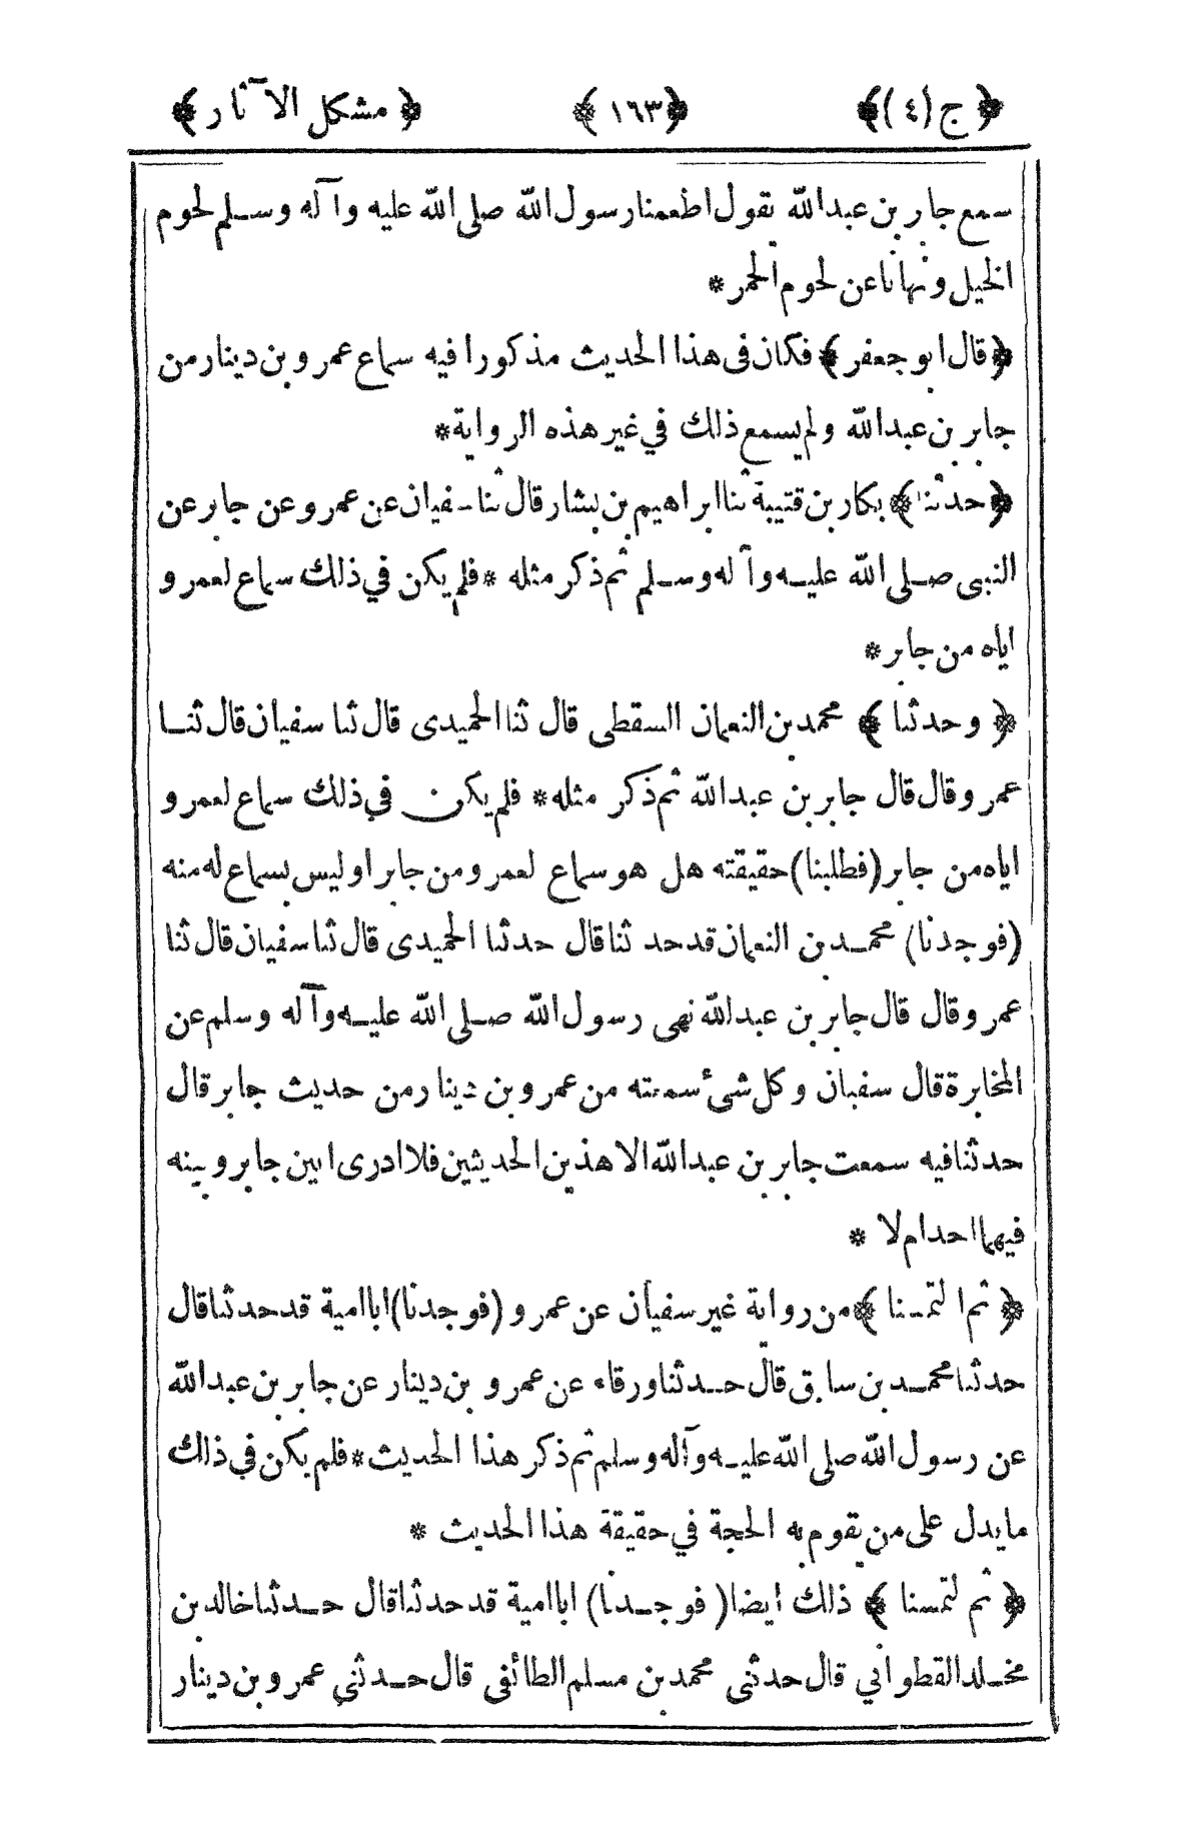 ﴿ج (٤)﴾ ﴿١٦٣﴾ ﴿مشكل الآثار﴾
سمع جابر بن عبدالله يقول اطعمنا رسول الله صلى الله عليه وآله وسلم لحوم
الخيل ونهانا عن لحوم الحمر *
﴿قال ابو جعفر﴾ فكان فى هذا الحديث مذكورا فيه سماع عمرو بن دينار من
جابر بن عبدالله ولم يسمع ذلك في غير هذه الرواية *
﴿حدثنا﴾ بكار بن قتيبة ثنا ابراهيم بن بشار قال ثنا سفيان عن عمرو عن جابر عن
النبى صلى الله عليه وآله وسلم ثم ذكر مثله * فلم يكن في ذلك سماع لعمرو
اياه من جابر *
﴿وحدثنا﴾ محمد بن النعمان السقطى قال ثنا الحميدى قال ثنا سفيان قال ثنا
عمرو قال قال جابر بن عبدالله ثم ذكر مثله * فلم يكن في ذلك سماع لعمرو
اياه من جابر (فطلبنا) حقيقته هل هو سماع لعمرو من جابر او ليس بسماع له منه
(فوجدنا) محمد بن النعمان قد حدثنا قال حدثنا الحميدى قال ثنا سفيان قال ثنا
عمرو قال قال جابر بن عبدالله نهى رسول الله صلى الله عليه وآله وسلم عن
المخابرة قال سفيان وكل شئ سمعته من عمرو بن دينار من حديث جابر قال
حدثنا فيه سمعت جابر بن عبدالله الا هذين الحديثين فلا ادرى ابين جابر وبينه
فيهما احد ام لا *
﴿ثم التمسنا﴾ من رواية غير سفيان عن عمرو (فوجدنا) ابا امية قد حدثنا قال
حدثنا محمد بن سابق قال حدثنا ورقاء عن عمرو بن دينار عن جابر بن عبدالله
عن رسول الله صلى الله عليه وآله وسلم ثم ذكر هذا الحديث * فلم يكن في ذلك
ما يدل على من يقوم به الحجة في حقيقة هذا الحديث *
﴿ثم لتمسنا﴾ ذلك ايضا (فوجدنا) ابا امية قد حدثنا قال حدثنا خالد بن
مخلد القطواني قال حدثنى محمد بن مسلم الطائفى قال حدثني عمرو بن دينار